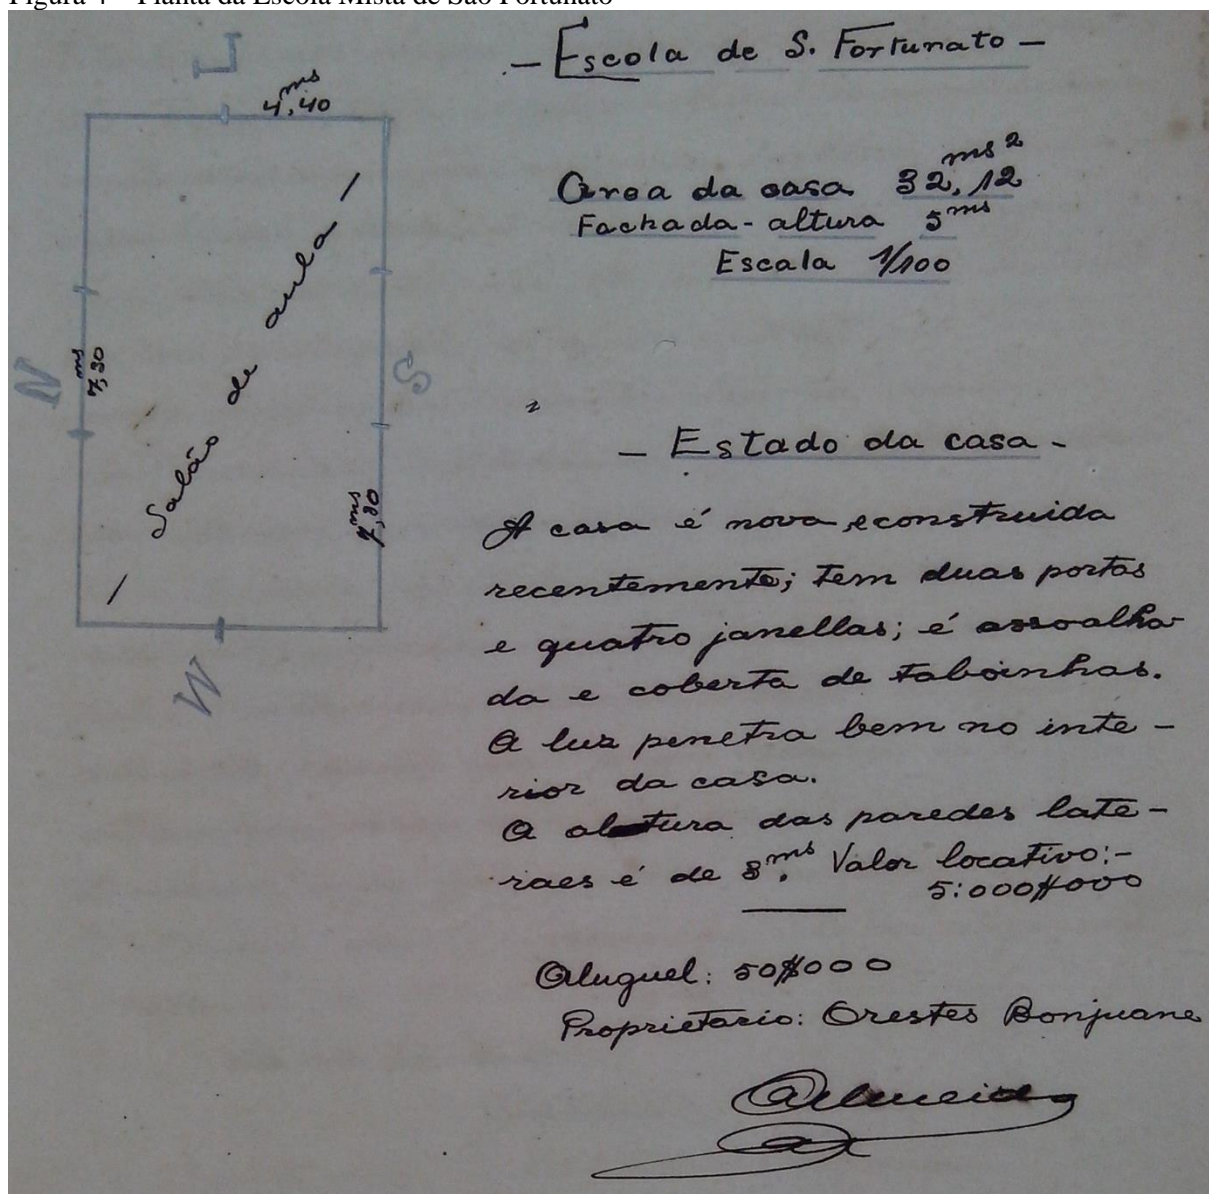 Figura 4 – Planta da Escola Mista de São Fortunato
L
4,40 ms
N
7,30 ms
– Salão de aula –
S
7,30 ms
W
– Escola de S. Fortunato –
Area da casa 32,12 ms 2
Fachada - altura 5 ms
Escala 1/100
– Estado da casa –
A casa é nova, e construida
recentemente; tem duas portas
e quatro janellas; é assoalha-
da e coberta de taboinhas.
A luz penetra bem no inte-
rior da casa.
A altura das paredes late-
raes é de 3 ms. Valor locativo:-
5:000$000
Aluguel: 50$000
Proprietario: Orestes Bonjuane
Almeida